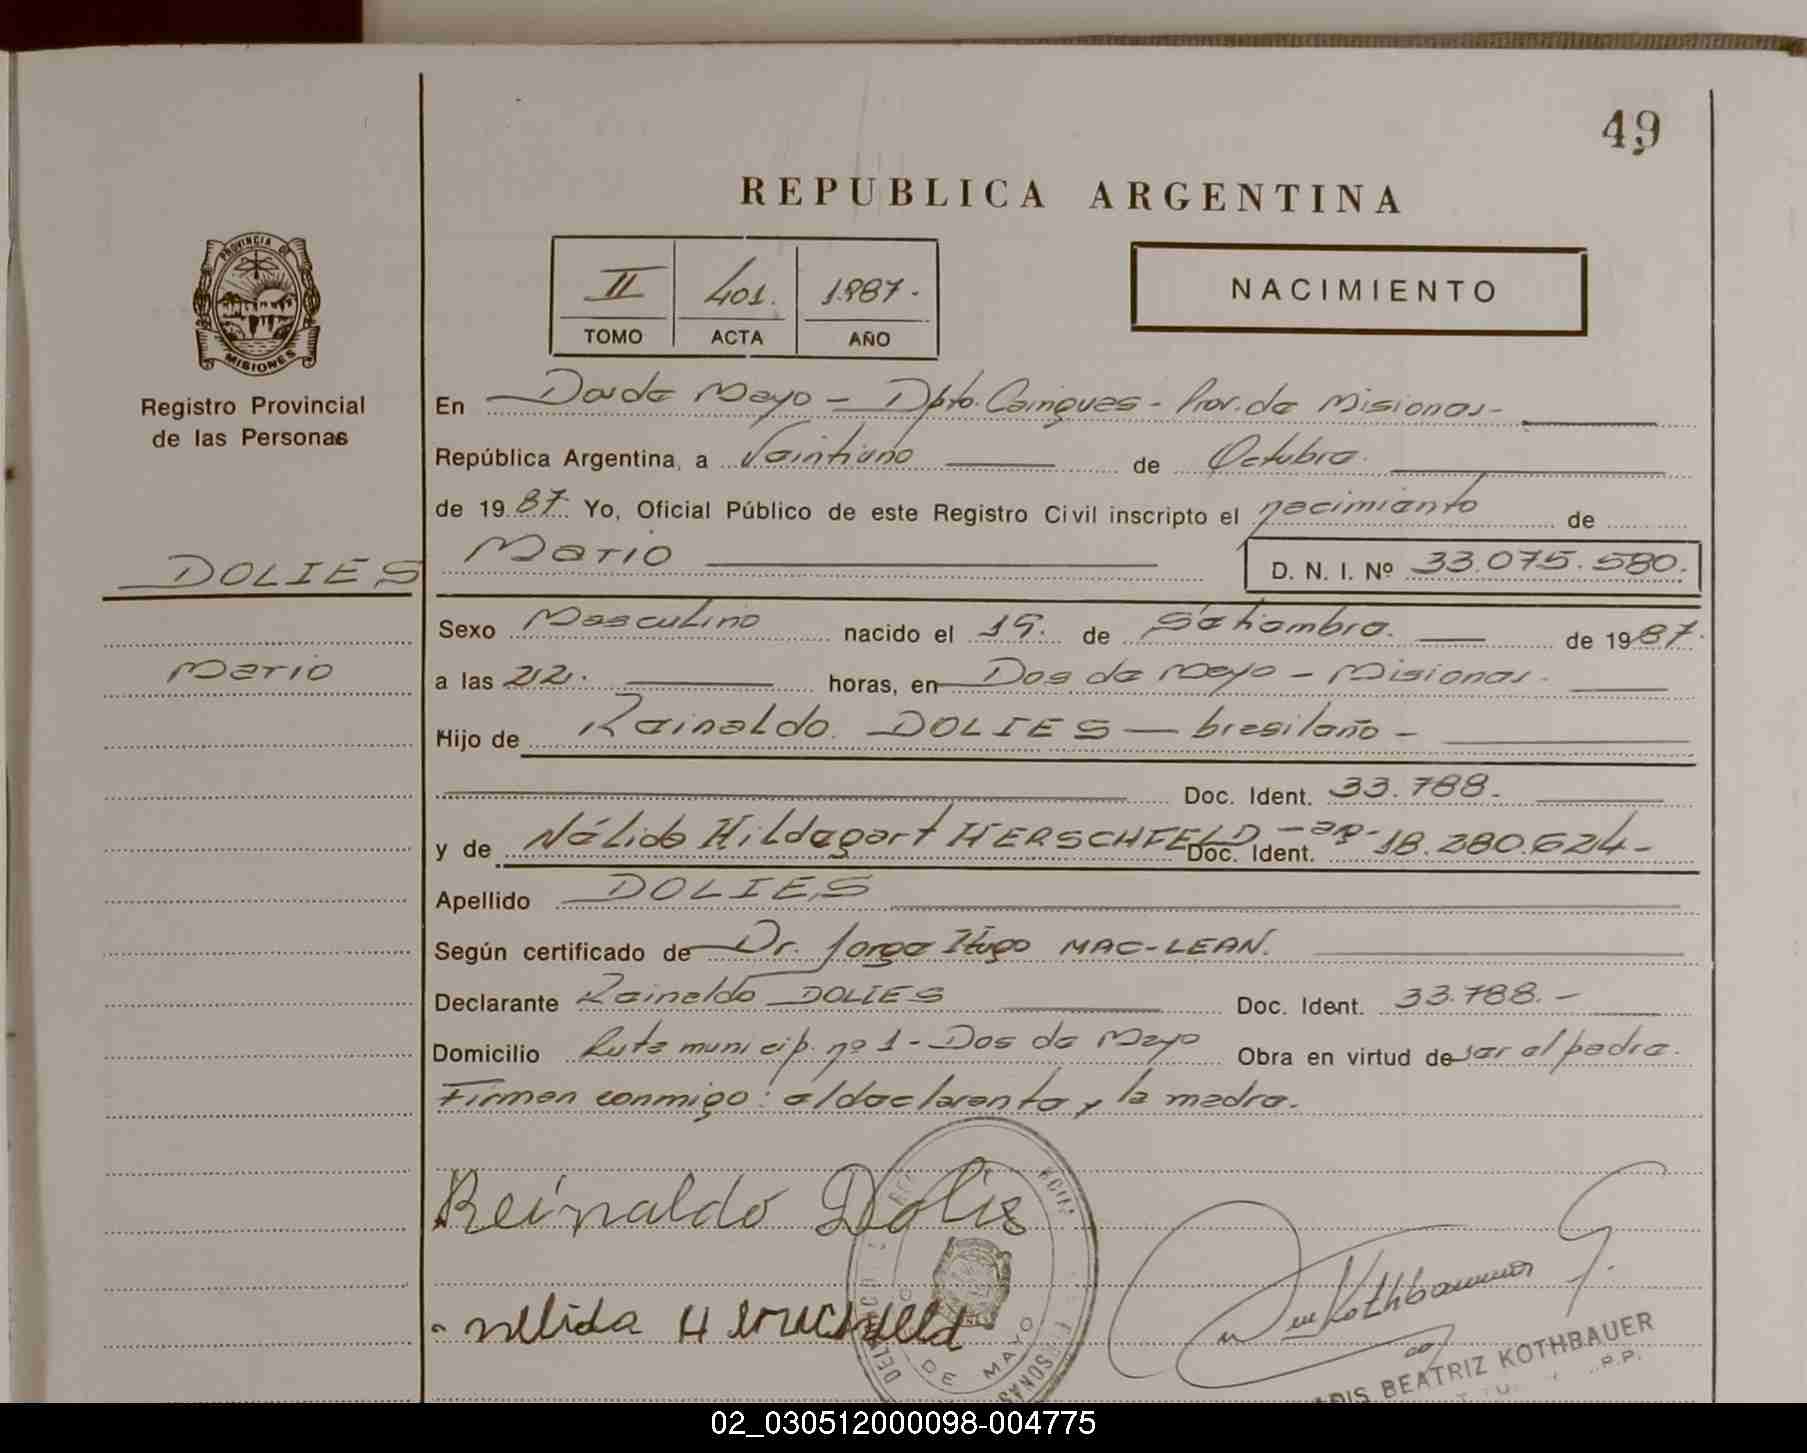 49
REPUBLICA ARGENTINA
II 401. 1987.-
TOMO ACTA AÑO
NACIMIENTO
PROVINCIA DE
MISIONES
Registro Provincial
de las Personas
DOLIES
Mario
En Dos de Mayo - Dpto. Cainguas - Prov. de Misiones-
República Argentina, a Veintiuno de Octubre.
de 1987. Yo, Oficial Público de este Registro Civil inscripto el nacimiento de
Mario D. N. I. Nº 33.075.580.
Sexo Masculino nacido el 19. de Setiembre. de 1987.
a las 22. horas, en Dos de Mayo - Misiones.
Hijo de Reinaldo DOLIES - brasileño -
Doc. Ident. 33.788.
y de Nélida Hildegart HERSCHFELD - ar.- Doc. Ident. 18.280.624-
Apellido DOLIES
Según certificado de Dr. Jorge Hugo MAC-LEAN.
Declarante Reinaldo DOLIES Doc. Ident. 33.788.-
Domicilio Ruta municip. nº 1 - Dos de Mayo Obra en virtud de ser el padre.
Firman conmigo: el declarante y la madre.
Reinaldo Dolies
Nelida H
DE MAYO
Kothbauer
BEATRIZ KOTHBAUER
02_030512000098-004775